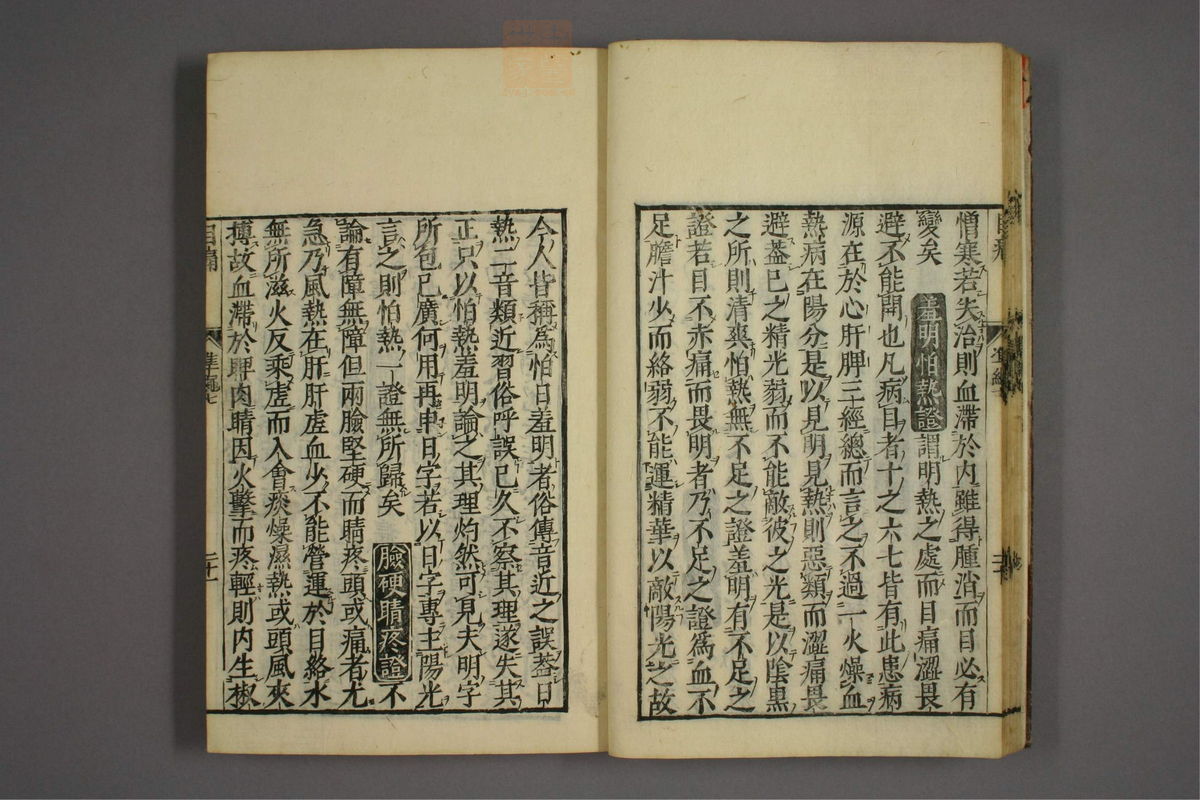 憎寒若失治則血滯於内雖得腫消而目必有
變矣 羞明怕熱證 謂明熱之處而目痛澀畏
避不能開也凡病目者十之六七皆有此患病
源在於心肝脾三經總而言之不過一火燥血
熱病在陽分是以見明見熱則惡類而澀痛畏
避蓋已之精光弱而不能敵彼之光是以陰黒
之所則清爽怕熱無不足之證羞明有不足之
證若目不赤痛而畏明者乃不足之證爲血不
足膽汁少而絡弱不能運精華以敵陽光之故
今人皆稱爲怕日羞明者俗傳音近之誤蓋日
熱二音類近習俗呼誤已久不察其理遂失其
正只以怕熱羞明論之其理灼然可見夫明字
所包已廣何用再申日字若以日字專主陽光
言之則怕熱一證無所歸矣 臉硬睛疼證 不
論有障無障但兩臉堅硬而睛疼頭或痛者尤
急乃風熱在肝肝虚血少不能營運於目絡水
無所滋火反乘虚而入會痰燥濕熱或頭風夾
搏故血滯於脾肉睛因火擊而疼輕則内生椒
目痛 準繩七 二十一